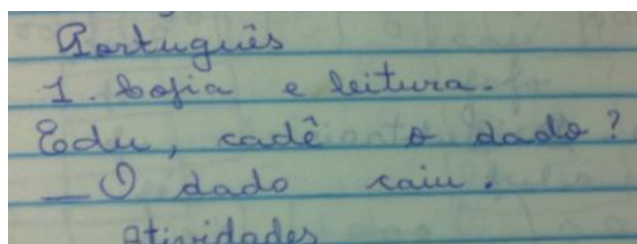 Português
1. Cópia e leitura.
Edu, cadê o dado?
— O dado caiu.
atividades